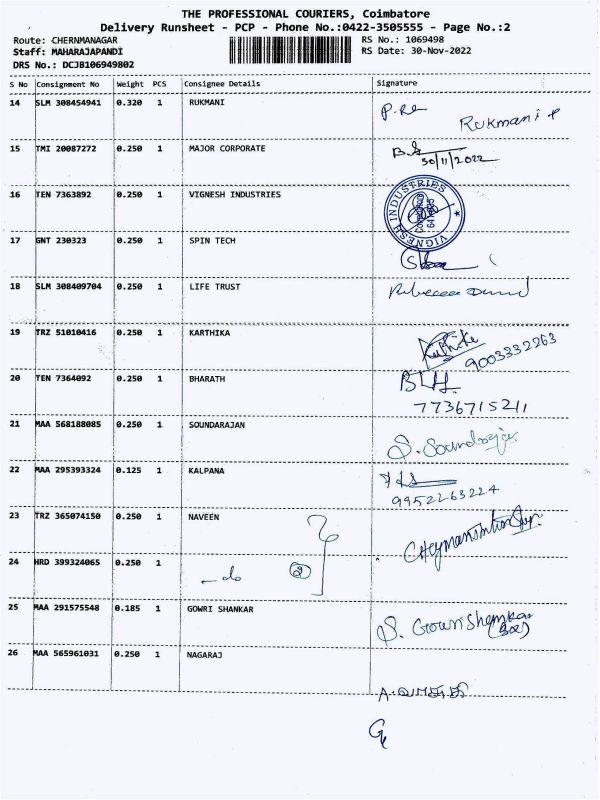 THE PROFESSIONAL COURIERS, Coimbatore
Delivery Runsheet - PCP - Phone No.:0422-3505555 - Page No.:2
Route: CHERNMANAGAR RS No.: 1069498
Staff: MAHARAJAPANDI RS Date: 30-Nov-2022
DRS No.: DCJB106949802
S No Consignment No Weight PCS Consignee Details Signature
14 SLM 308454941 0.320 1 RUKMANI
Rukmani
15 TMI 20087272 0.250 1 MAJOR CORPORATE
30/11/2022
16 TEN 7363892 0.250 1 VIGNESH INDUSTRIES
VIGNESH INDUSTRIES
17 GNT 230323 0.250 1 SPIN TECH
18 SLM 308409704 0.250 1 LIFE TRUST
19 TRZ 51010416 0.250 1 KARTHIKA
Karthika
9003332263
20 TEN 7364092 0.250 1 BHARATH
7736715211
21 MAA 568188085 0.250 1 SOUNDARAJAN
22 MAA 295393324 0.125 1 KALPANA
9952263224
23 TRZ 365074150 0.250 1 NAVEEN
24 HRD 399324065 0.250 1
do 2
25 MAA 291575548 0.185 1 GOWRI SHANKAR
26 MAA 565961031 0.250 1 NAGARAJ